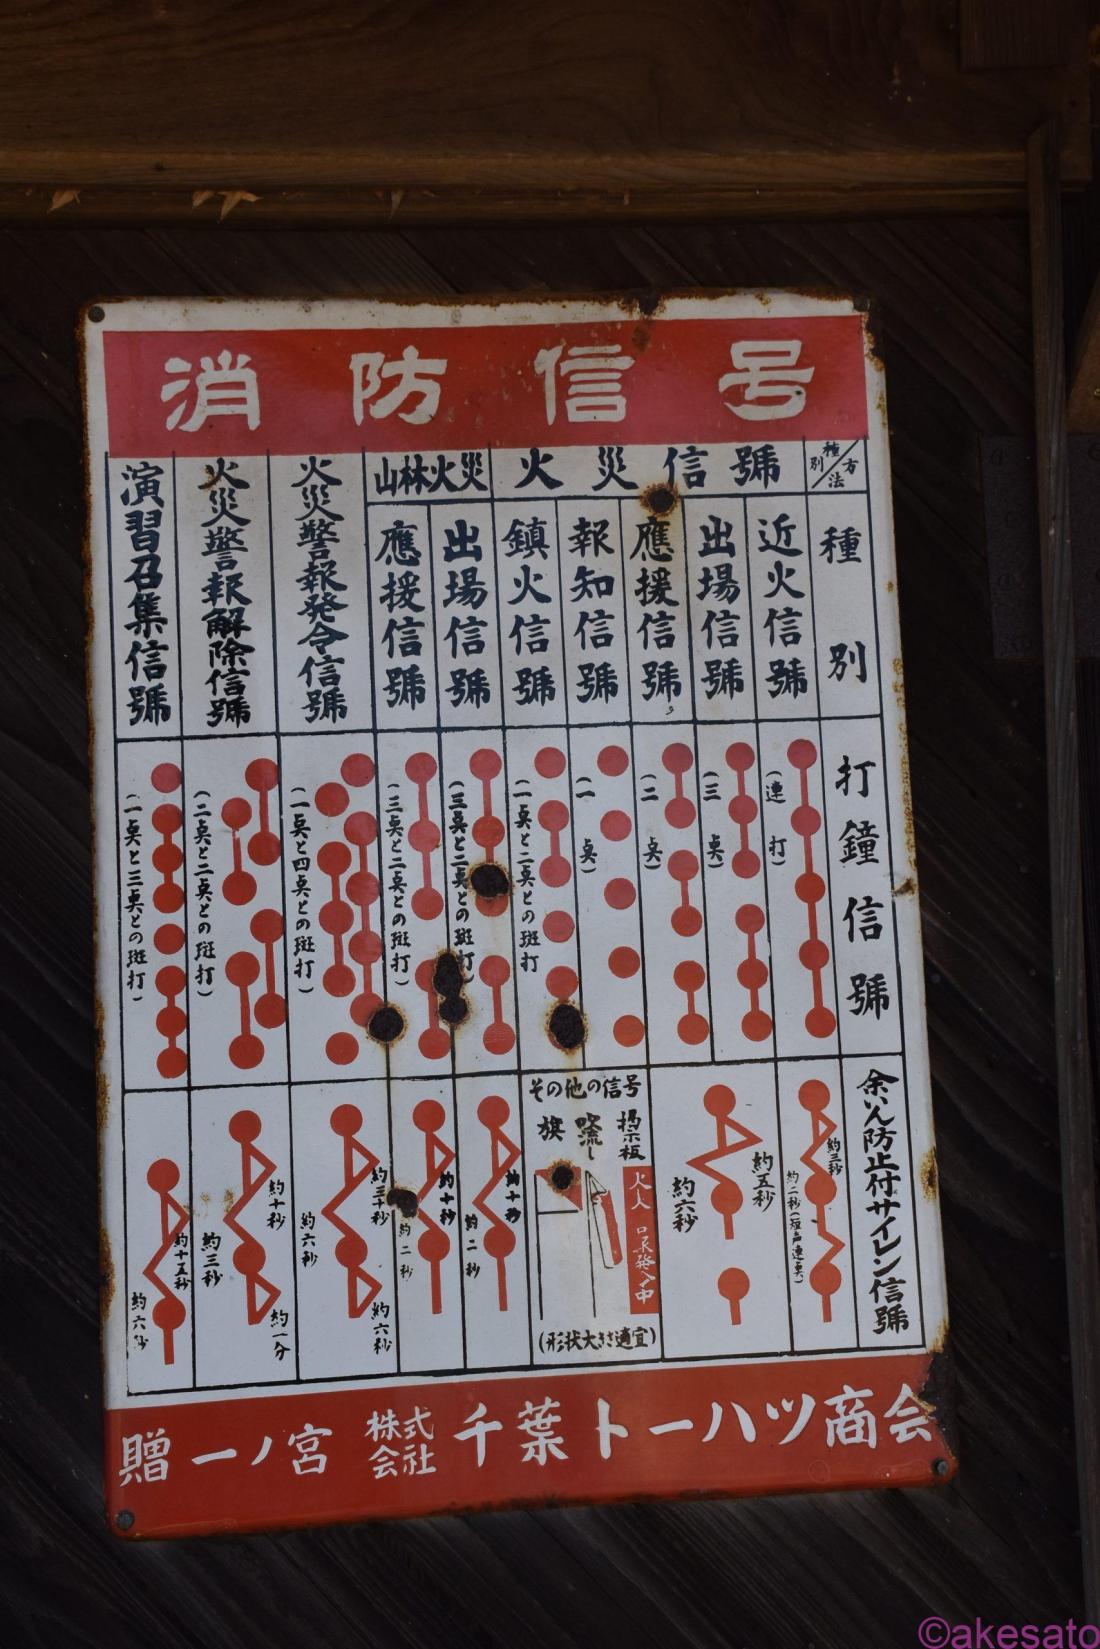 消防信号
方法
種別
種別
打鐘信號
余いん防止付サイレン信號
火災信號
近火信號
(連打)
約三秒
約二秒(短声連点)
出場信號
(三点)
應援信號
(二点)
約五秒
約六秒
報知信號
(一点)
鎮火信號
(一点と二点との斑打
その他の信号
掲示板
吹流し
旗
(形状大きさ適宜)
山林火災
出場信號
(三点と二点との斑打)
約十秒
約二秒
應援信號
(三点と二点との斑打)
約十秒
約二秒
火災警報発令信號
(一点と四点との斑打)
約三十秒
約六秒
約六秒
火災警報解除信號
(二点と二点との斑打)
約十秒
約三秒
約一分
演習召集信號
(一点と三点との斑打)
約十五秒
約六秒
贈 一ノ宮 株式会社 千葉トーハツ商会
©akesato